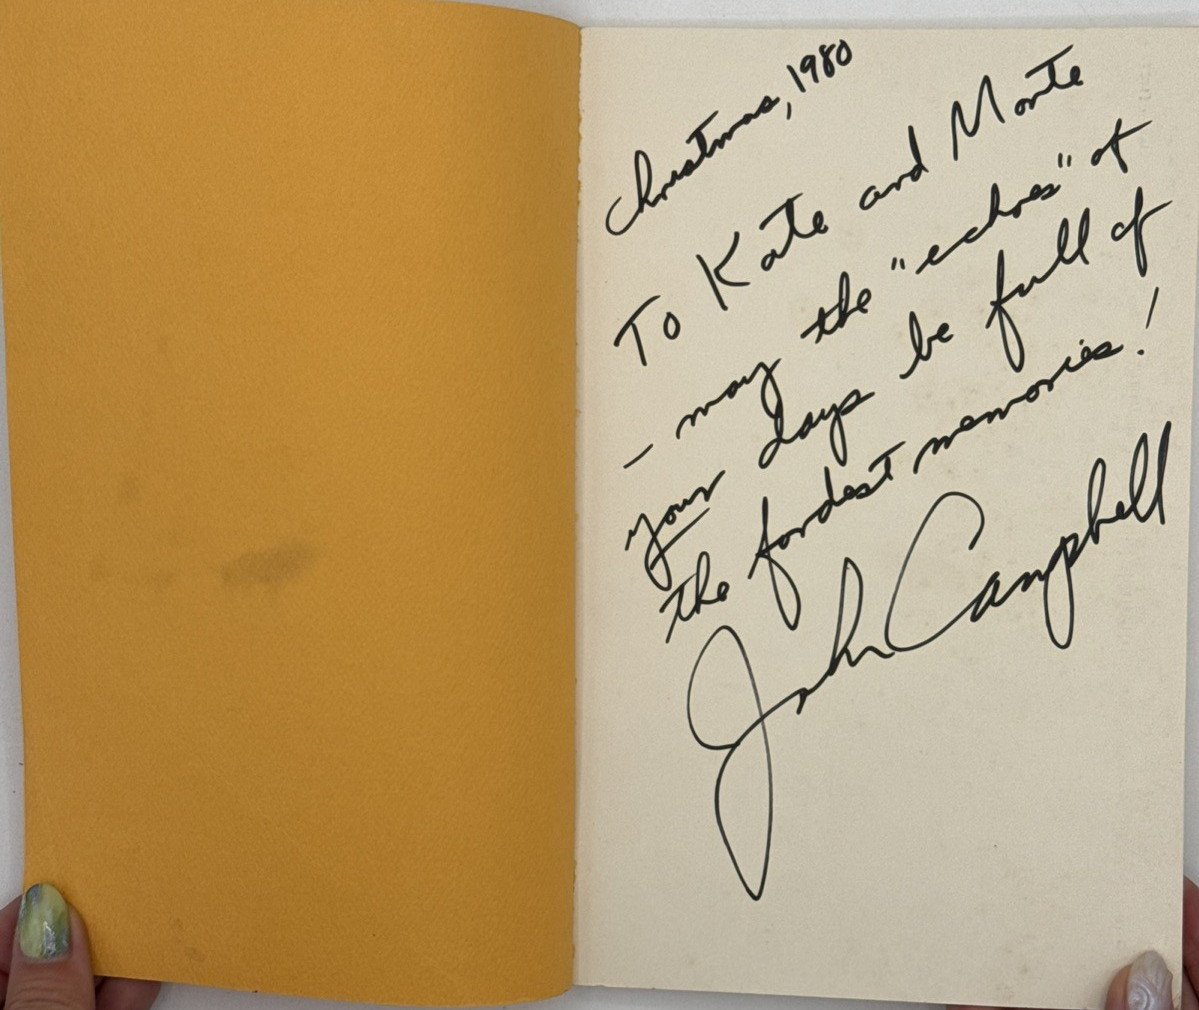 Christmas, 1980
To Kate and Monte
– may the "echoes" of
your days be full of
the fondest memories!
John Campbell